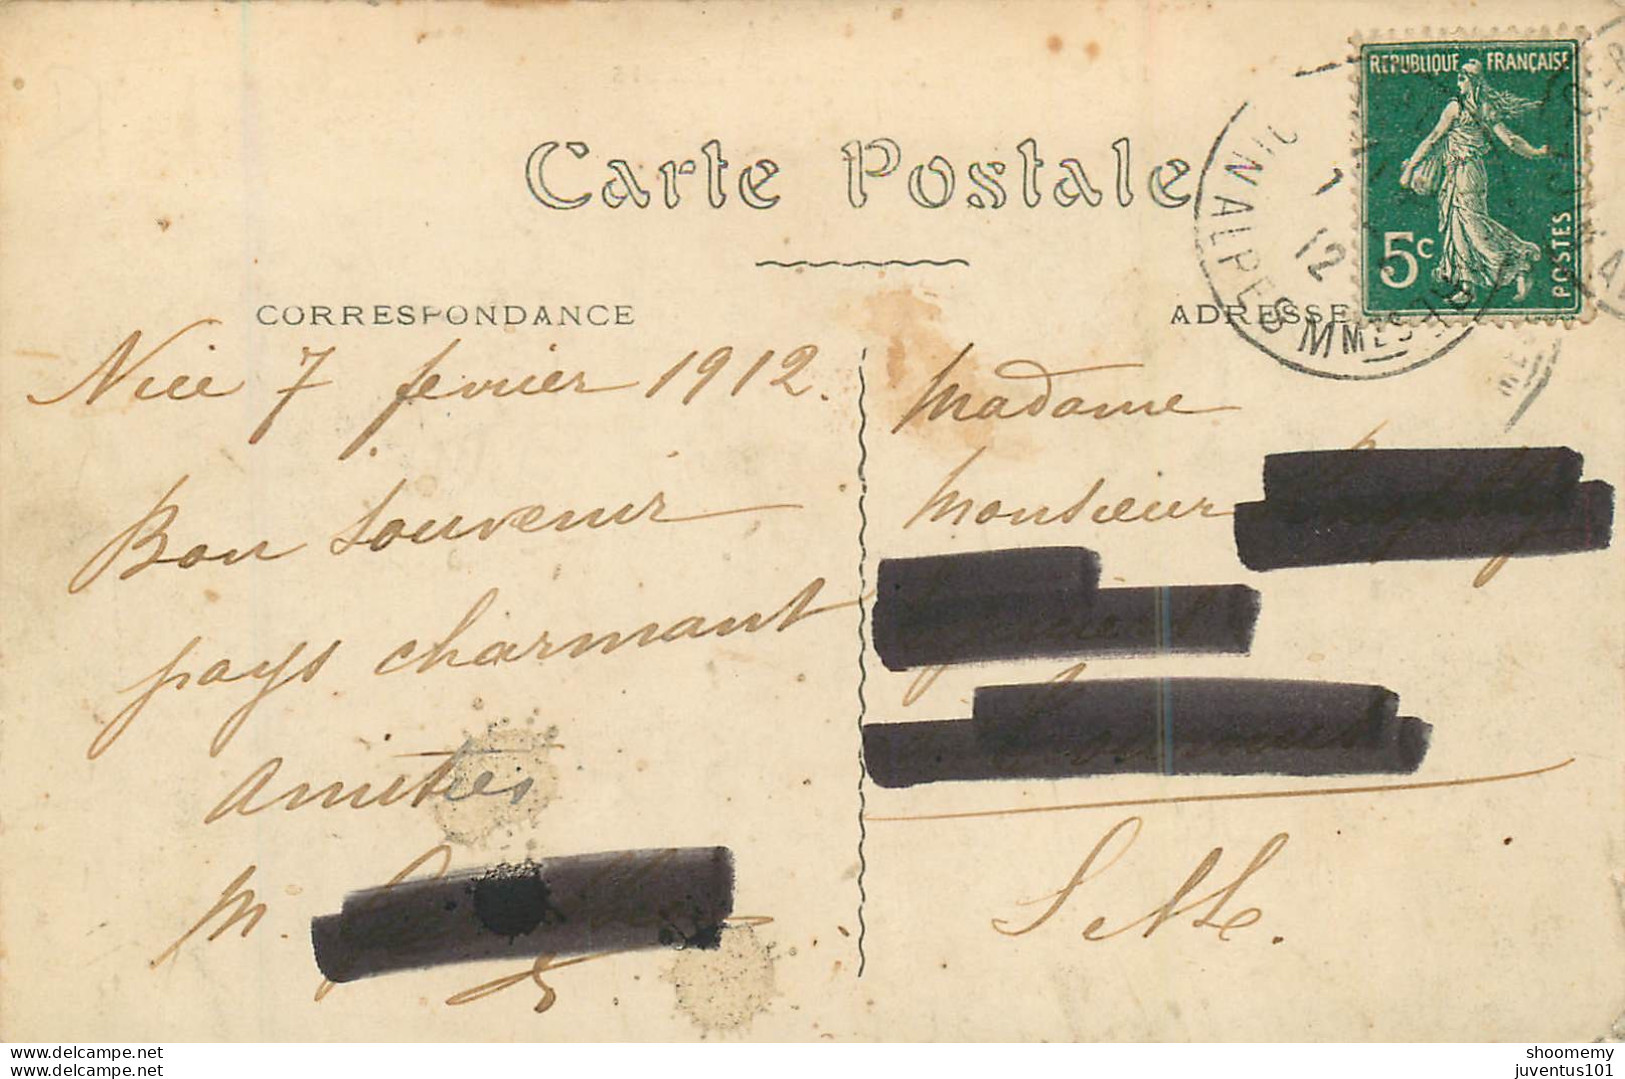 Carte Postale
CORRESPONDANCE
ADRESSE
REPUBLIQUE FRANÇAISE
5c
POSTES
12
ALPES MMES
Nice 7 fevrier 1912.
Bon souvenir
pays charmant
Amitiés
M.
Madame
Monsieur
S & M.
www.delcampe.net
www.delcampe.net
shoomemy
juventus101